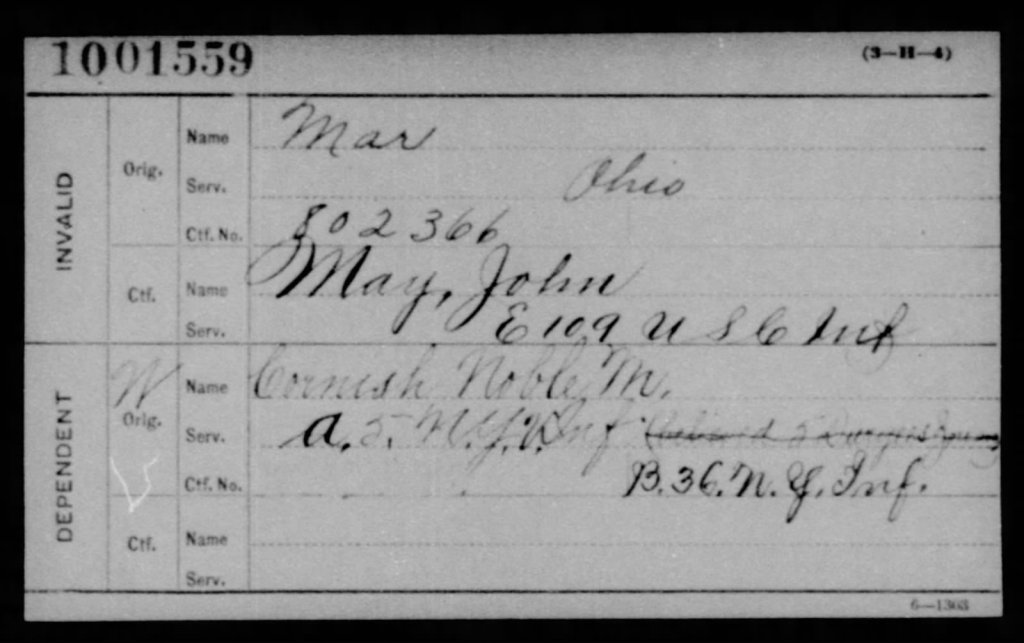 1001559 (3—H—4)
INVALID
Orig.
Name Mar
Serv. Ohio
Ctf. No. 802366
Ctf.
Name May, John
Serv. E 109 U S C Inf
DEPENDENT
W
Orig.
Name Cornish Noble M.
Serv. A. 5. N.Y.V. Inf
Ctf. No. B. 36. N. Y. Inf.
Ctf.
Name
Serv.
6—1303